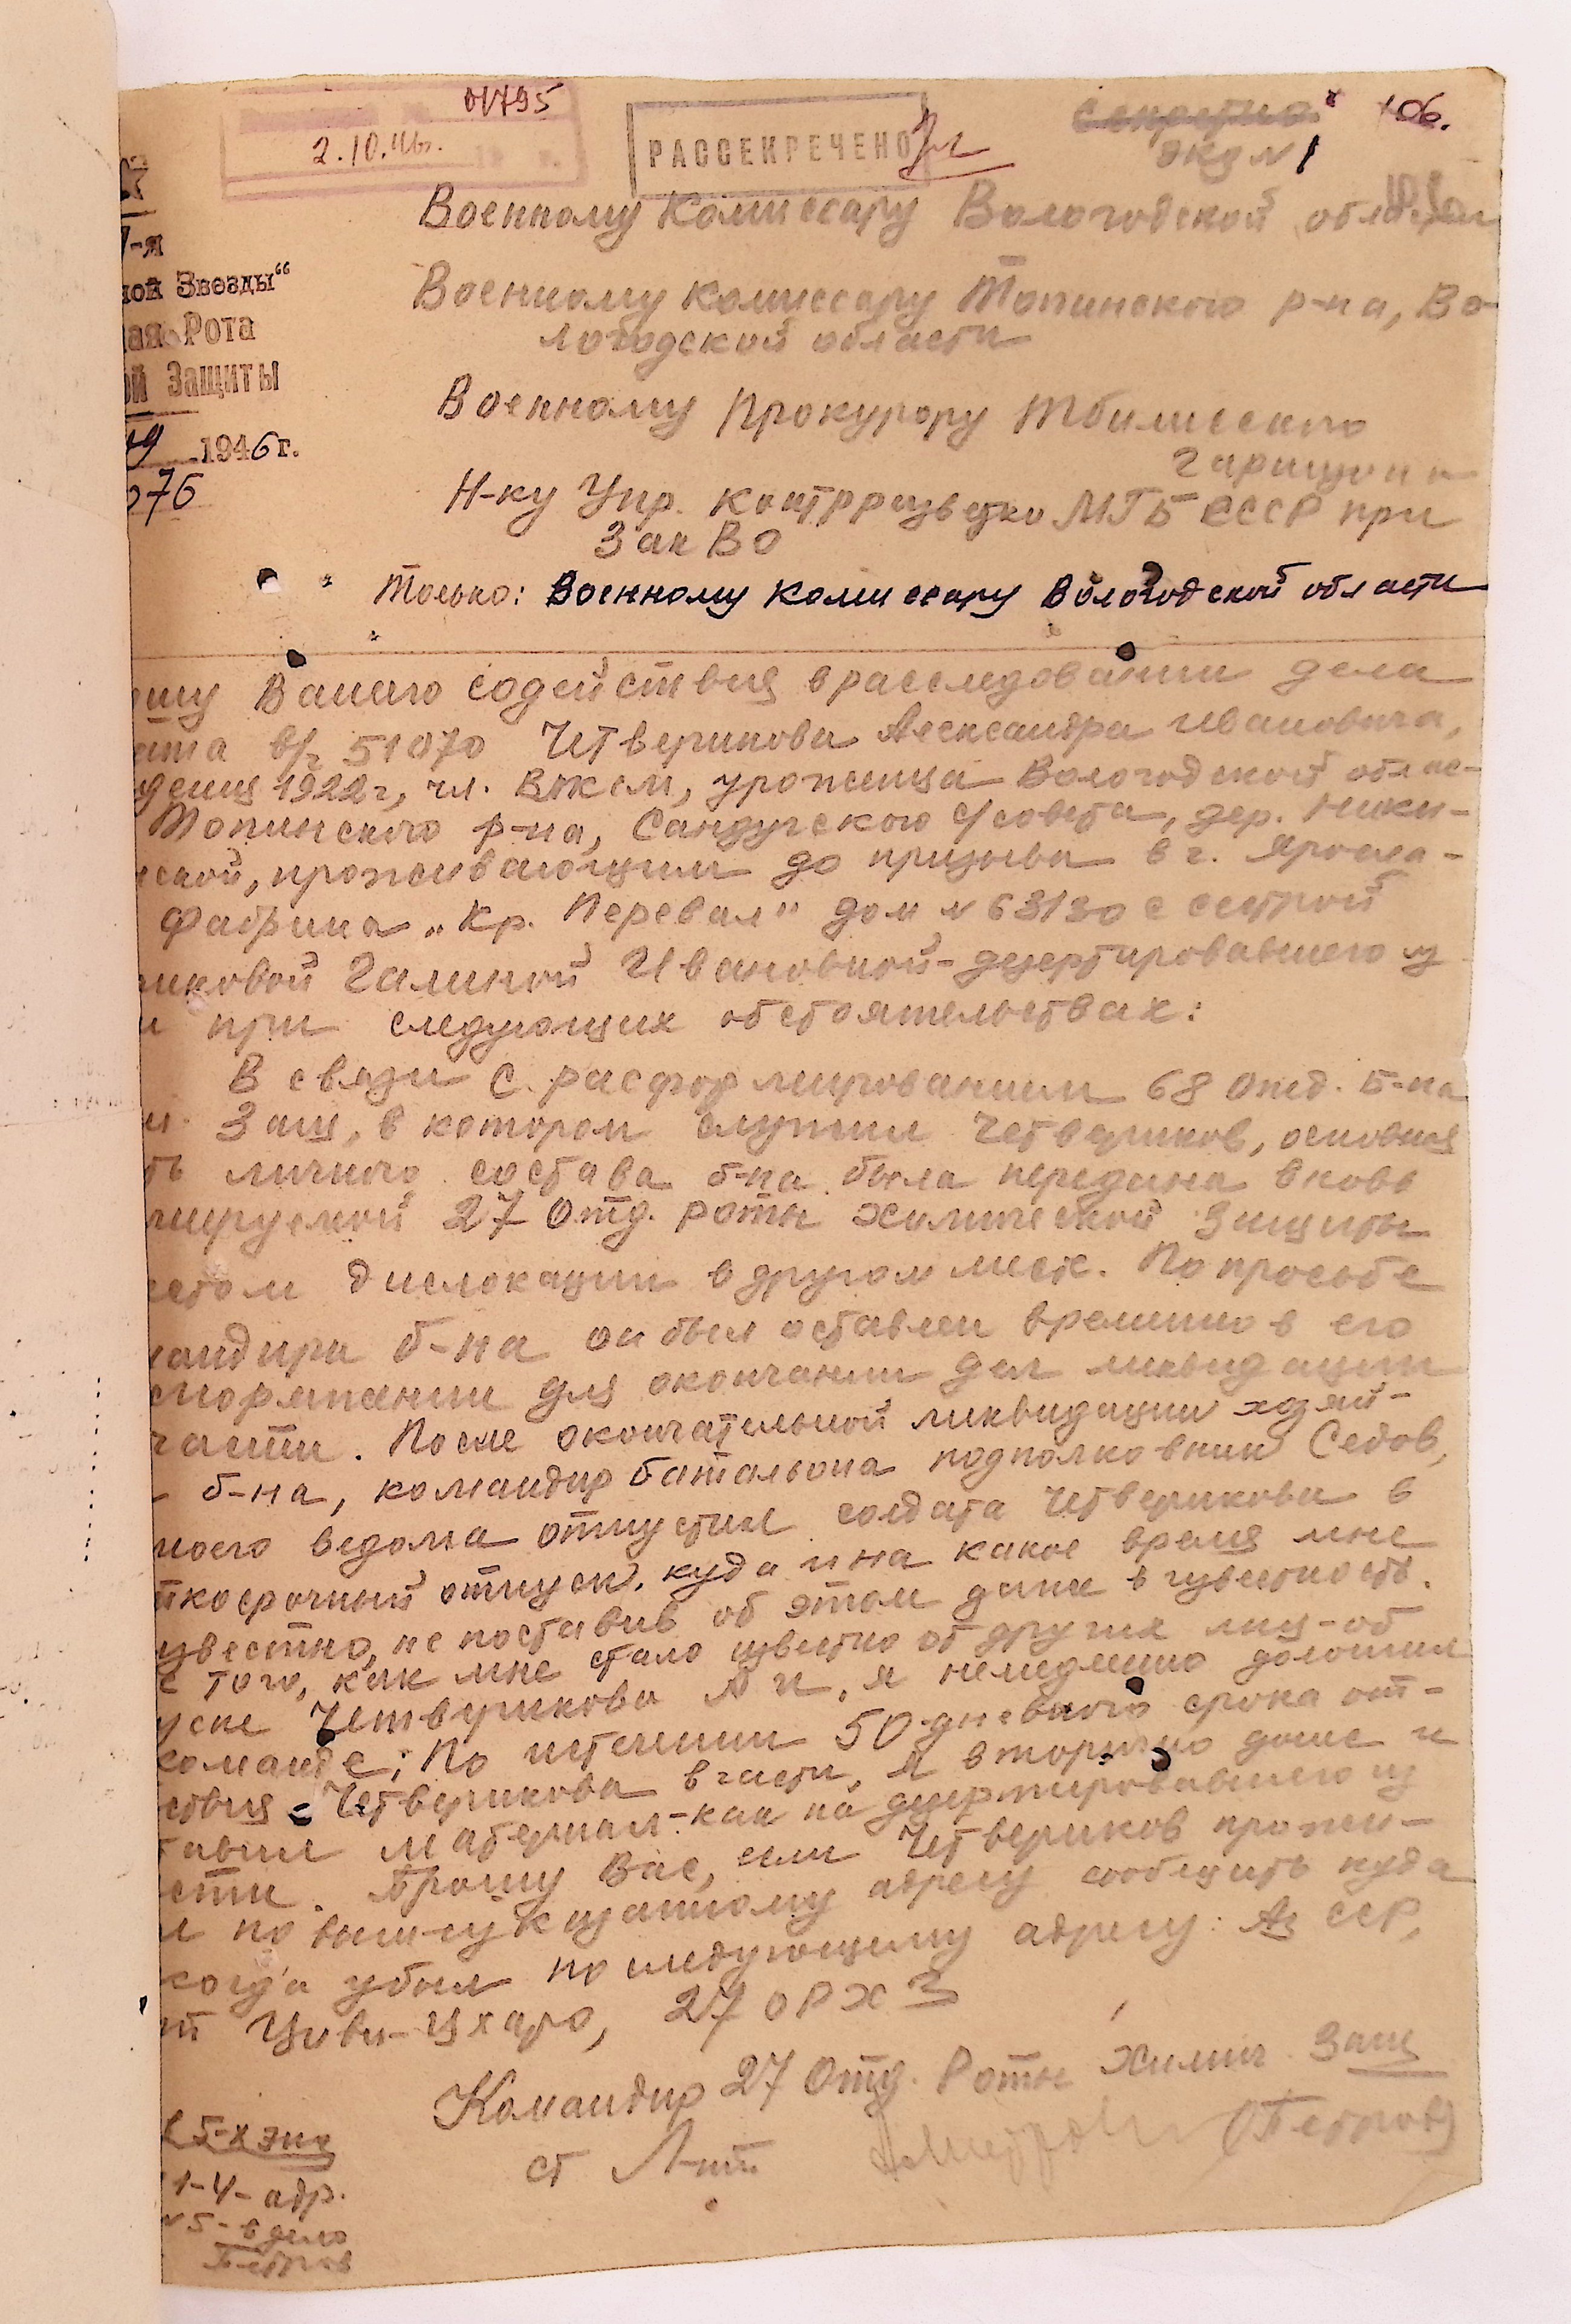 01795
2.10.46г.
РАССЕКРЕЧЕНО
Секретно
106.
экз N 1
7-я
ной Звезды"
ая Рота
ой Защиты
19 1946 г.
076
Военному Комиссару Вологодской
Военному Комиссару Тотминского р-на, Во-
логодской области
Военному Прокурору Тбилисского
гарнизона
Н-ку Упр. Контрразведки МГБ СССР при
ЗакВО
Только: Военному Комиссару Вологодской области
ошу Вашего содействия в расследовании дела
ата в/ч 51070 Четверикова Александра Ивановича,
дения 1922 г, чл. ВЛКСМ, уроженца Вологодской облас-
р-на, с/совета, дер. Ники-
ской, проживающим до призыва в г. Яросла-
Фабрика „Кр. Перевал" дом N 63/30 с сестрой
риковой Галиной Ивановной - дезертировавшего из
и при следующих обстоятельствах:
В связи с расформированием 68 Отд. Б-на
м. Защ, в котором служил Четвериков, основная
ть личного состава б-на была передана вновь
мируемой 27 Отд. роты химической защиты
естом дислокации в другом месте. По просьбе
мандира б-на он был оставлен временно в его
споряжении для окончании дел ликвидации
части. После окончательной ликвидации хозяй-
б-на, командир батальона подполковник Седов,
моего ведома отпустил солдата Четверикова в
ткосрочный отпуск, куда и на какое время мне
известно, не поставив об этом даже в известность.
е того, как мне стало известно от других лиц - об
уске Четверикова А И, я немедленно доложил
команде; По истечении 50-дневного срока от-
ствия Четверикова в части, я вторично донес и
тавил материал - как на дезертировавшего из
сти. Прошу Вас, если Четвериков прожи-
л по вышеуказанному адресу сообщить куда
когда убыл по следующему адресу: Аз ССР,
т Цители-Цхаро, 27 ОРХЗ
Командир 27 Отд. Роты Химич. Защ
ст Л-нт (Петров)
5-х экз
1-4 - адр.
N 5 - в дело
Петров